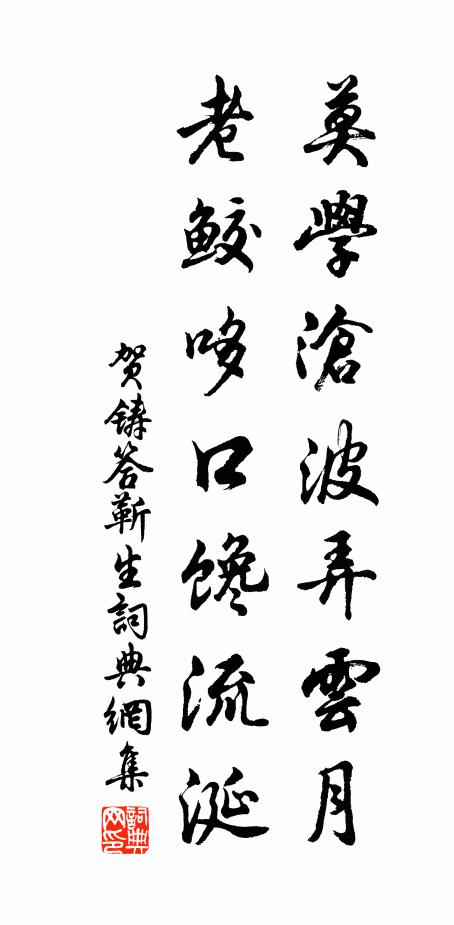 莫學滄波弄雲月
老鮫哆口馋流涎
贺鑄答靳生詞典網集
詞典网印